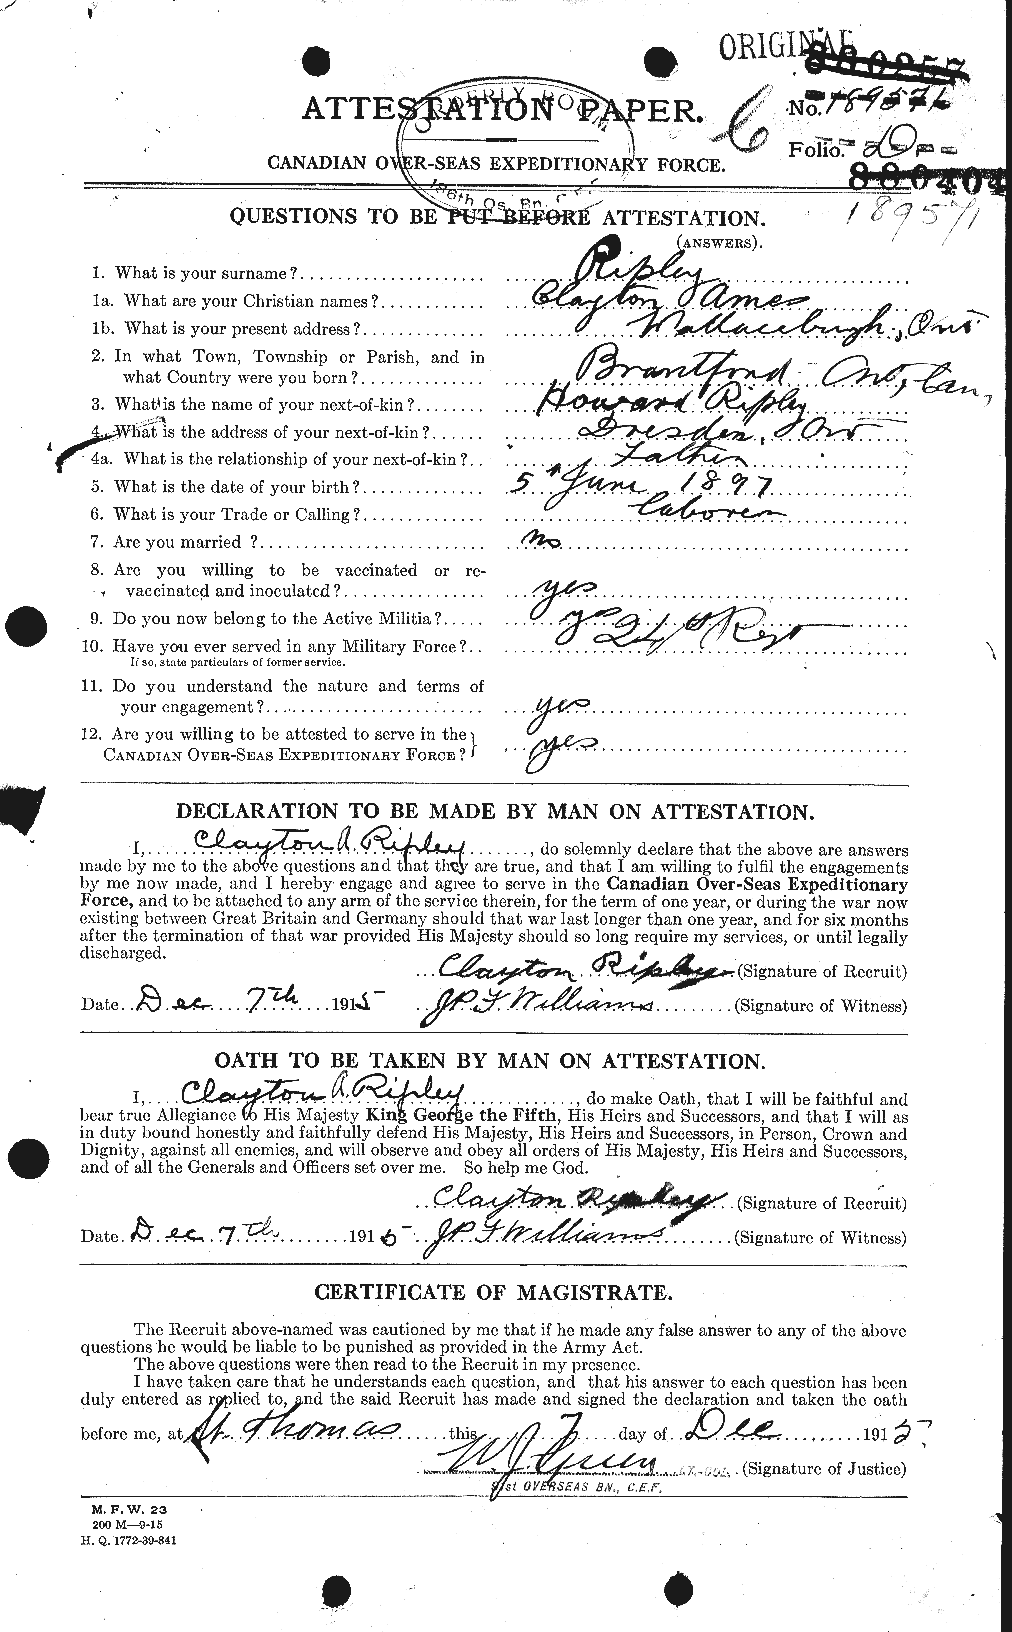 ORIGINAL
880257
ATTESTATION PAPER.
No. 189571
Folio.
ORDERLY ROOM
186th Os. Bn. C.E.F.
CANADIAN OVER-SEAS EXPEDITIONARY FORCE.
880404
189571
QUESTIONS TO BE PUT BEFORE ATTESTATION.
(ANSWERS).
1. What is your surname? Ripley
1a. What are your Christian names? Clayton Ames
1b. What is your present address? Wallaceburgh, Ont
2. In what Town, Township or Parish, and in
what Country were you born? Brantford Ont, Can,
3. What is the name of your next-of-kin? Howard Ripley
4. What is the address of your next-of-kin? Dresden, Ont
4a. What is the relationship of your next-of-kin? Father
5. What is the date of your birth? 5th June 1897
6. What is your Trade or Calling? Laborer
7. Are you married? No
8. Are you willing to be vaccinated or re-
vaccinated and inoculated? yes
9. Do you now belong to the Active Militia? yes 24th Regt
10. Have you ever served in any Military Force?
If so, state particulars of former service.
11. Do you understand the nature and terms of
your engagement? yes
12. Are you willing to be attested to serve in the
CANADIAN OVER-SEAS EXPEDITIONARY FORCE? yes
DECLARATION TO BE MADE BY MAN ON ATTESTATION.
I, Clayton A. Ripley, do solemnly declare that the above are answers
made by me to the above questions and that they are true, and that I am willing to fulfil the engagements
by me now made, and I hereby engage and agree to serve in the Canadian Over-Seas Expeditionary
Force, and to be attached to any arm of the service therein, for the term of one year, or during the war now
existing between Great Britain and Germany should that war last longer than one year, and for six months
after the termination of that war provided His Majesty should so long require my services, or until legally
discharged.
Clayton Ripley (Signature of Recruit)
Date Dec 7th 1915 J.P.F. Williams (Signature of Witness)
OATH TO BE TAKEN BY MAN ON ATTESTATION.
I, Clayton A. Ripley, do make Oath, that I will be faithful and
bear true Allegiance to His Majesty King George the Fifth, His Heirs and Successors, and that I will as
in duty bound honestly and faithfully defend His Majesty, His Heirs and Successors, in Person, Crown and
Dignity, against all enemies, and will observe and obey all orders of His Majesty, His Heirs and Successors,
and of all the Generals and Officers set over me. So help me God.
Clayton Ripley (Signature of Recruit)
Date Dec 7th 1915 J.P.F. Williams (Signature of Witness)
CERTIFICATE OF MAGISTRATE.
The Recruit above-named was cautioned by me that if he made any false answer to any of the above
questions he would be liable to be punished as provided in the Army Act.
The above questions were then read to the Recruit in my presence.
I have taken care that he understands each question, and that his answer to each question has been
duly entered as replied to, and the said Recruit has made and signed the declaration and taken the oath
before me, at St. Thomas this 7 day of Dec 1915
W J Green LT.-COL. (Signature of Justice)
91st OVERSEAS BN., C.E.F.
M. F. W. 23
200 M—9-15
H. Q. 1772-39-841